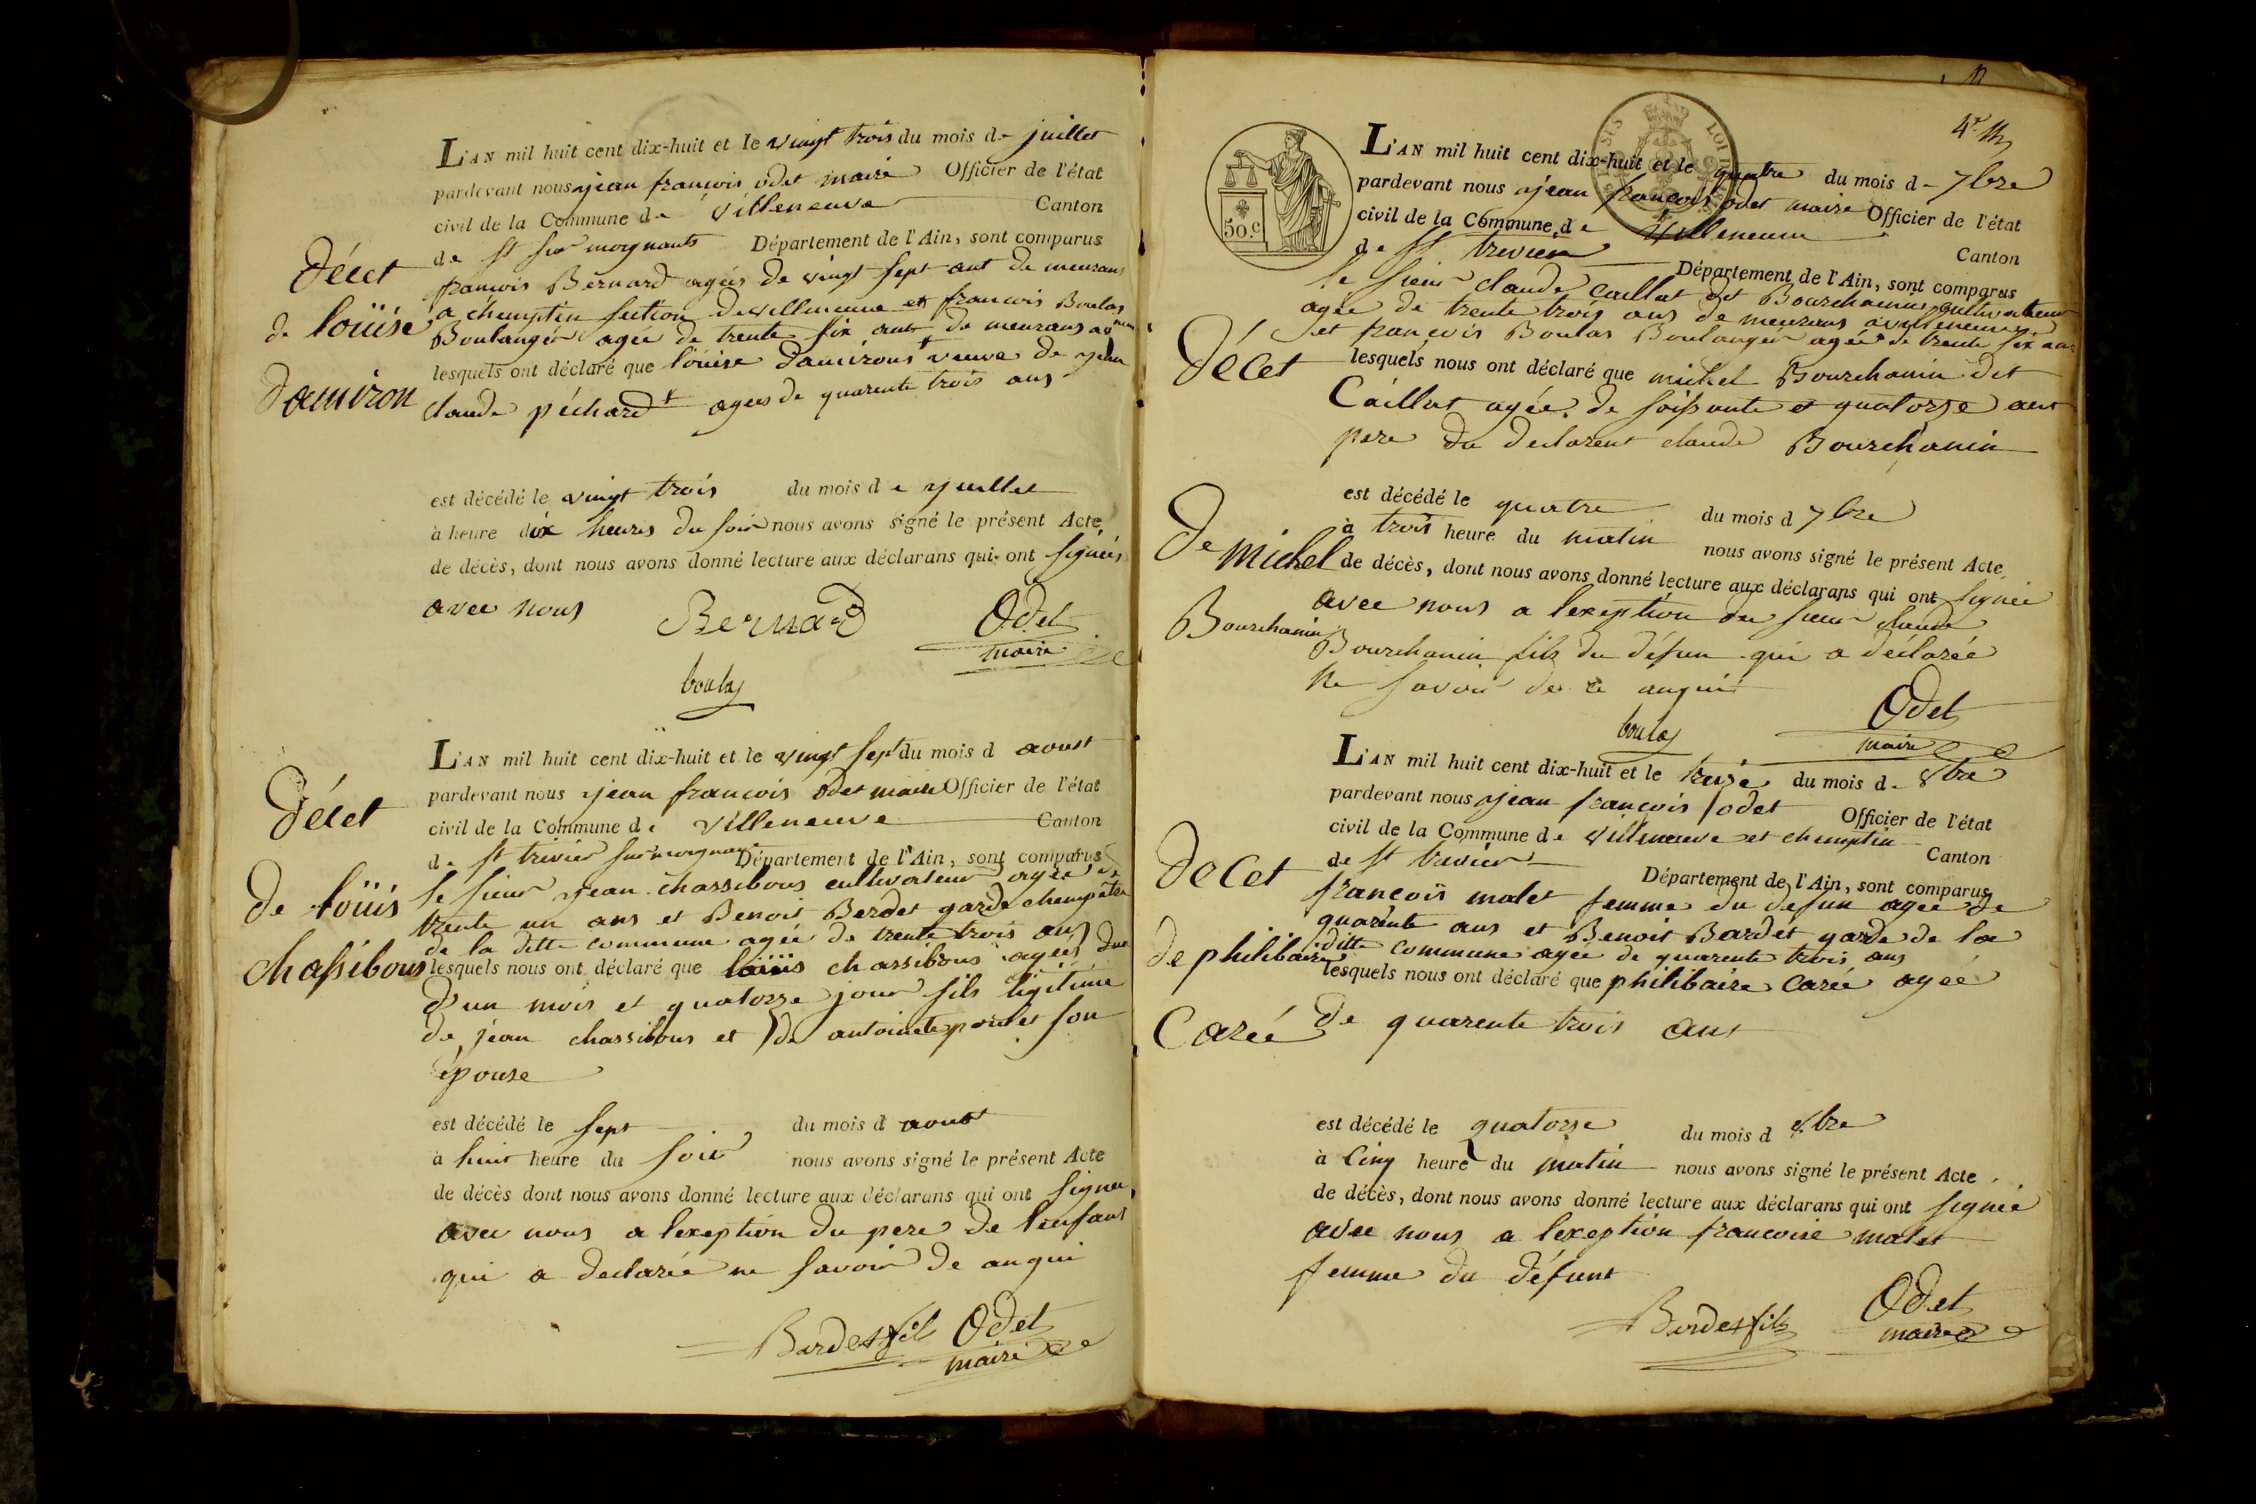 L'AN mil huit cent dix-huit et le vingt trois du mois de juillet
pardevant nous jean francois odet maire Officier de l'état
civil de la Commune de villeneuve Canton
de St moignants Département de l'Ain, sont comparus
francois Bernard agées de vingt sept ant de meurans
a chemptin section de villeneuve et francois Boulas
Boulanger agée de trente six ant de meurans
lesquels ont déclaré que loüise damirons veuve de jean
claude péchard agees de quarente trois ans
Décet
de loüisé
damiron
est décédé le vingt trois du mois de juillet
à heure dix heures du soir nous avons signé le présent Acte
de décès, dont nous avons donné lecture aux déclarans qui ont signées
avec nous Bernard Odet
maire
boulas
L'AN mil huit cent dix-huit et le vingt sept du mois d aoust
pardevant nous jean francois odet maire Officier de l'état
civil de la Commune de villeneuve Canton
de st trivier sur moignans Département de l'Ain, sont comparus
le sieur jean chassibous cultivateur agée de
trente un ans et Benoit Berdet garde chempêtre
de la ditte commune agée de trente trois ans
lesquels nous ont déclaré que loüis chassibous agées
d'un mois et quatorze jour fils ligitime
de jéan chassibous et de antoinete son
épouse
Décet
de loüis
chassibous
est décédé le sept du mois d aout
à huit heure du soir nous avons signé le présent Acte
de décès dont nous avons donné lecture aux déclarans qui ont signée
avec nous a lexeption du pere de lenfant
qui a declarée ne savoir de anquis
Bardet fils Odet
maire
4e
50.c
L'AN mil huit cent dix-huit et le quatre du mois de 7bre
pardevant nous jean francois odet maire Officier de l'état
civil de la Commune de villeneuve Canton
de St trevier Département de l'Ain, sont comparus
le sieur claude caillat dit Bourchanin cultivateur
agée de trente trois ans de meurans a villeneuve
et francois Boulas Boulanger agée de trente six ans
lesquels nous ont déclaré que michel Bourchanin dit
Caillat agée de soissante et quatorze ant
pere du declarent claude Bourchanin
Décet
de michel
Bourchanin
est décédé le quatre du mois d 7bre
à trois heure du matin nous avons signé le présent Acte
de décès, dont nous avons donné lecture aux déclarans qui ont signée
avec nous a lexeption du sieur claude
Bourchanin fils du défun qui a déclarée
ne savoir de ce anquis
boulas Odet
maire
L'AN mil huit cent dix-huit et le treize du mois de 8bre
pardevant nous jean françois odet Officier de l'état
civil de la Commune de villeneuve et chemptin Canton
de st trevier Département de l'Ain, sont comparus
francois malet femme du defun agée de
quarente ans et Benoit Bardet garde de la
ditte commune agée de quarente trois ans
lesquels nous ont déclaré que philibaire Carée agée
de quarente trois ans
décet
de philibaire
Carée
est décédé le quatorze du mois d 8bre
à Cinq heure du matin nous avons signé le présent Acte
de décès, dont nous avons donné lecture aux déclarans qui ont signée
avec nous a lexeption francoise malet
femme du défunt
Bardet fils Odet
maire